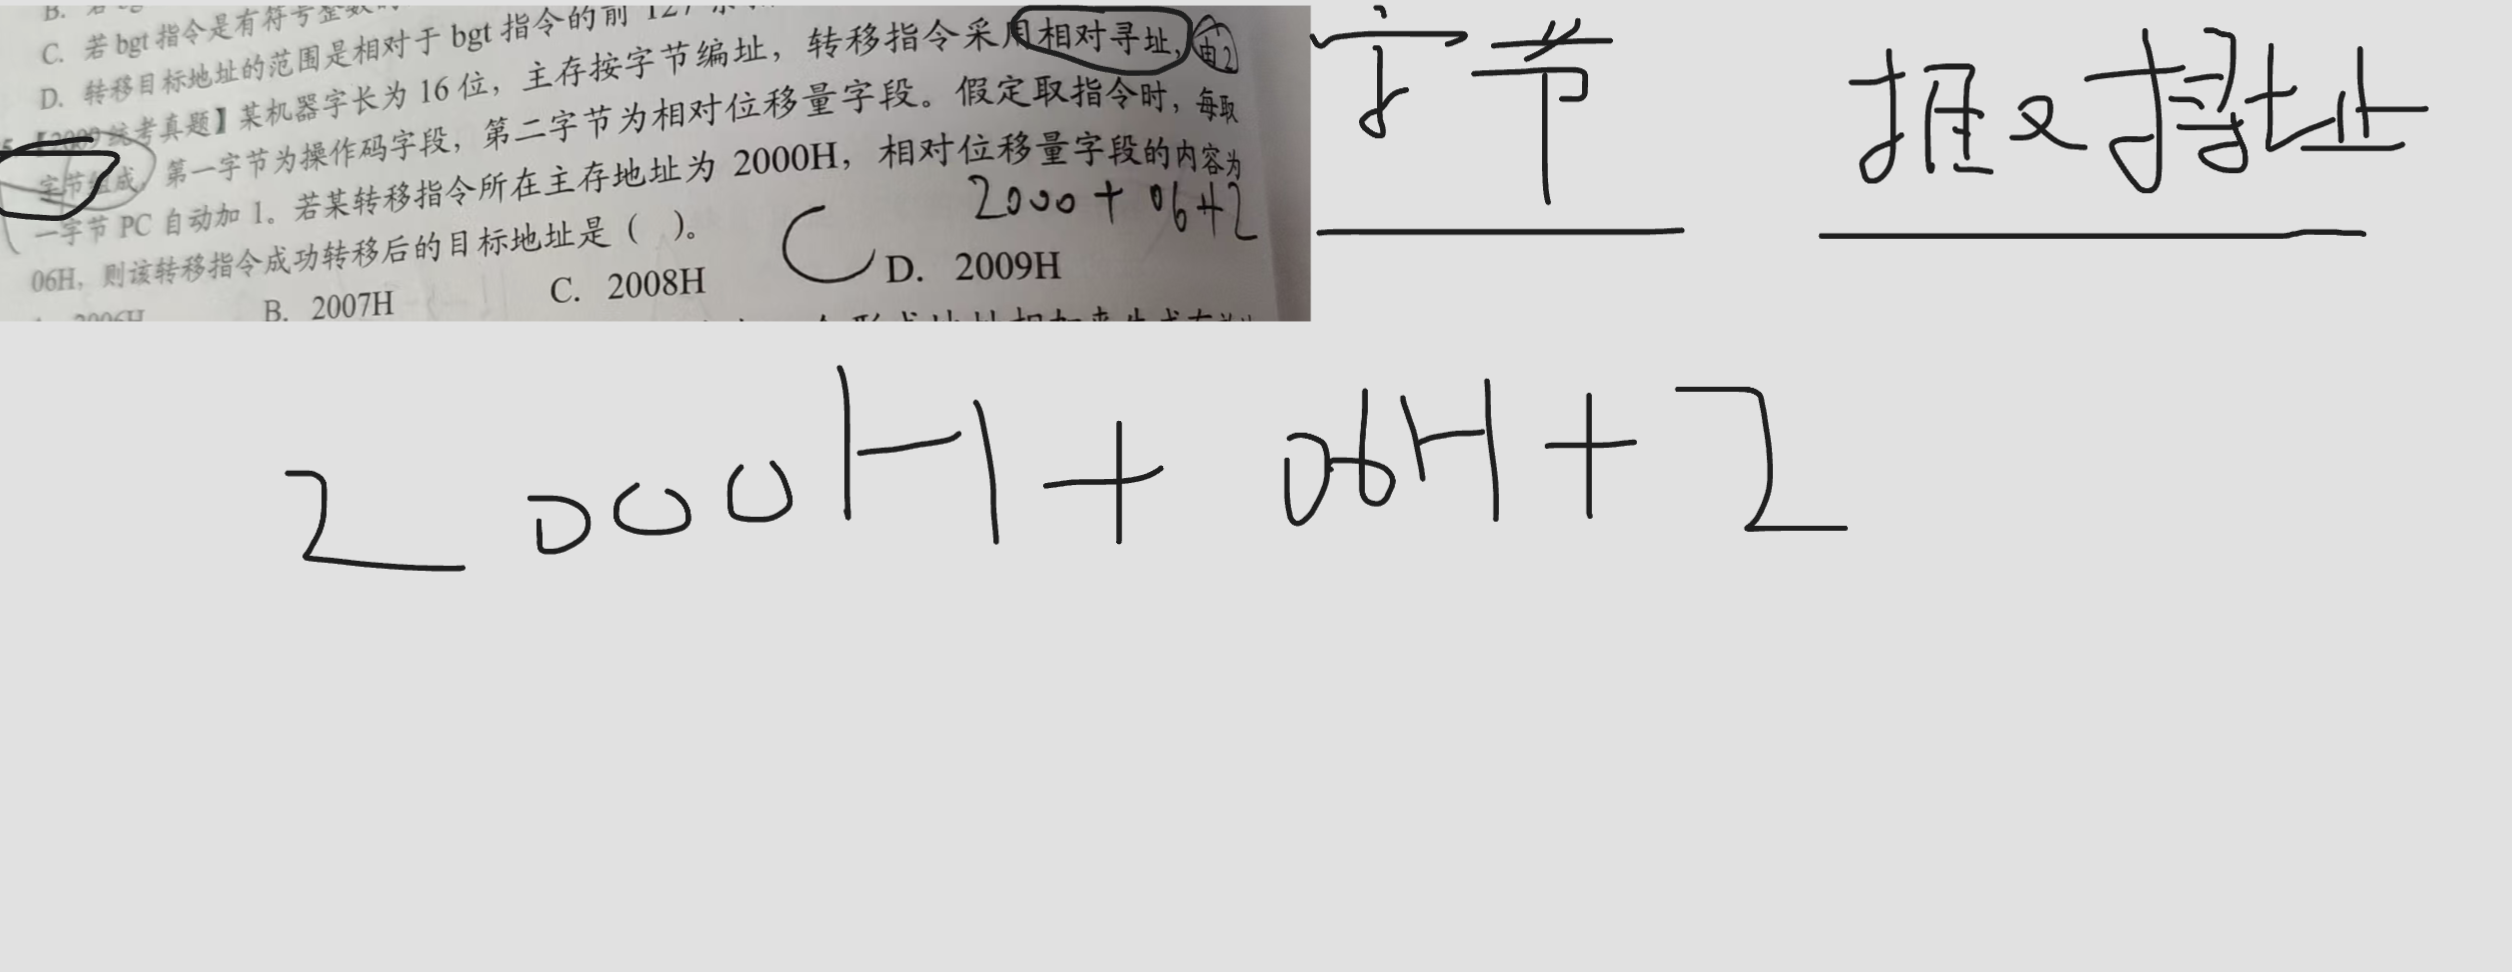 C. 若 bgt 指令是有符号整数
D. 转移目标地址的范围是相对于 bgt 指令的前 127
【2009 统考真题】某机器字长为 16 位，主存按字节编址，转移指令采用相对寻址，由 2
字节组成，第一字节为操作码字段，第二字节为相对位移量字段。假定取指令时，每取
一字节 PC 自动加 1。若某转移指令所在主存地址为 2000H，相对位移量字段的内容为
06H，则该转移指令成功转移后的目标地址是（ ）。
2000 + 06H2
C
B. 2007H C. 2008H D. 2009H
字节
2000H + 06H + 2